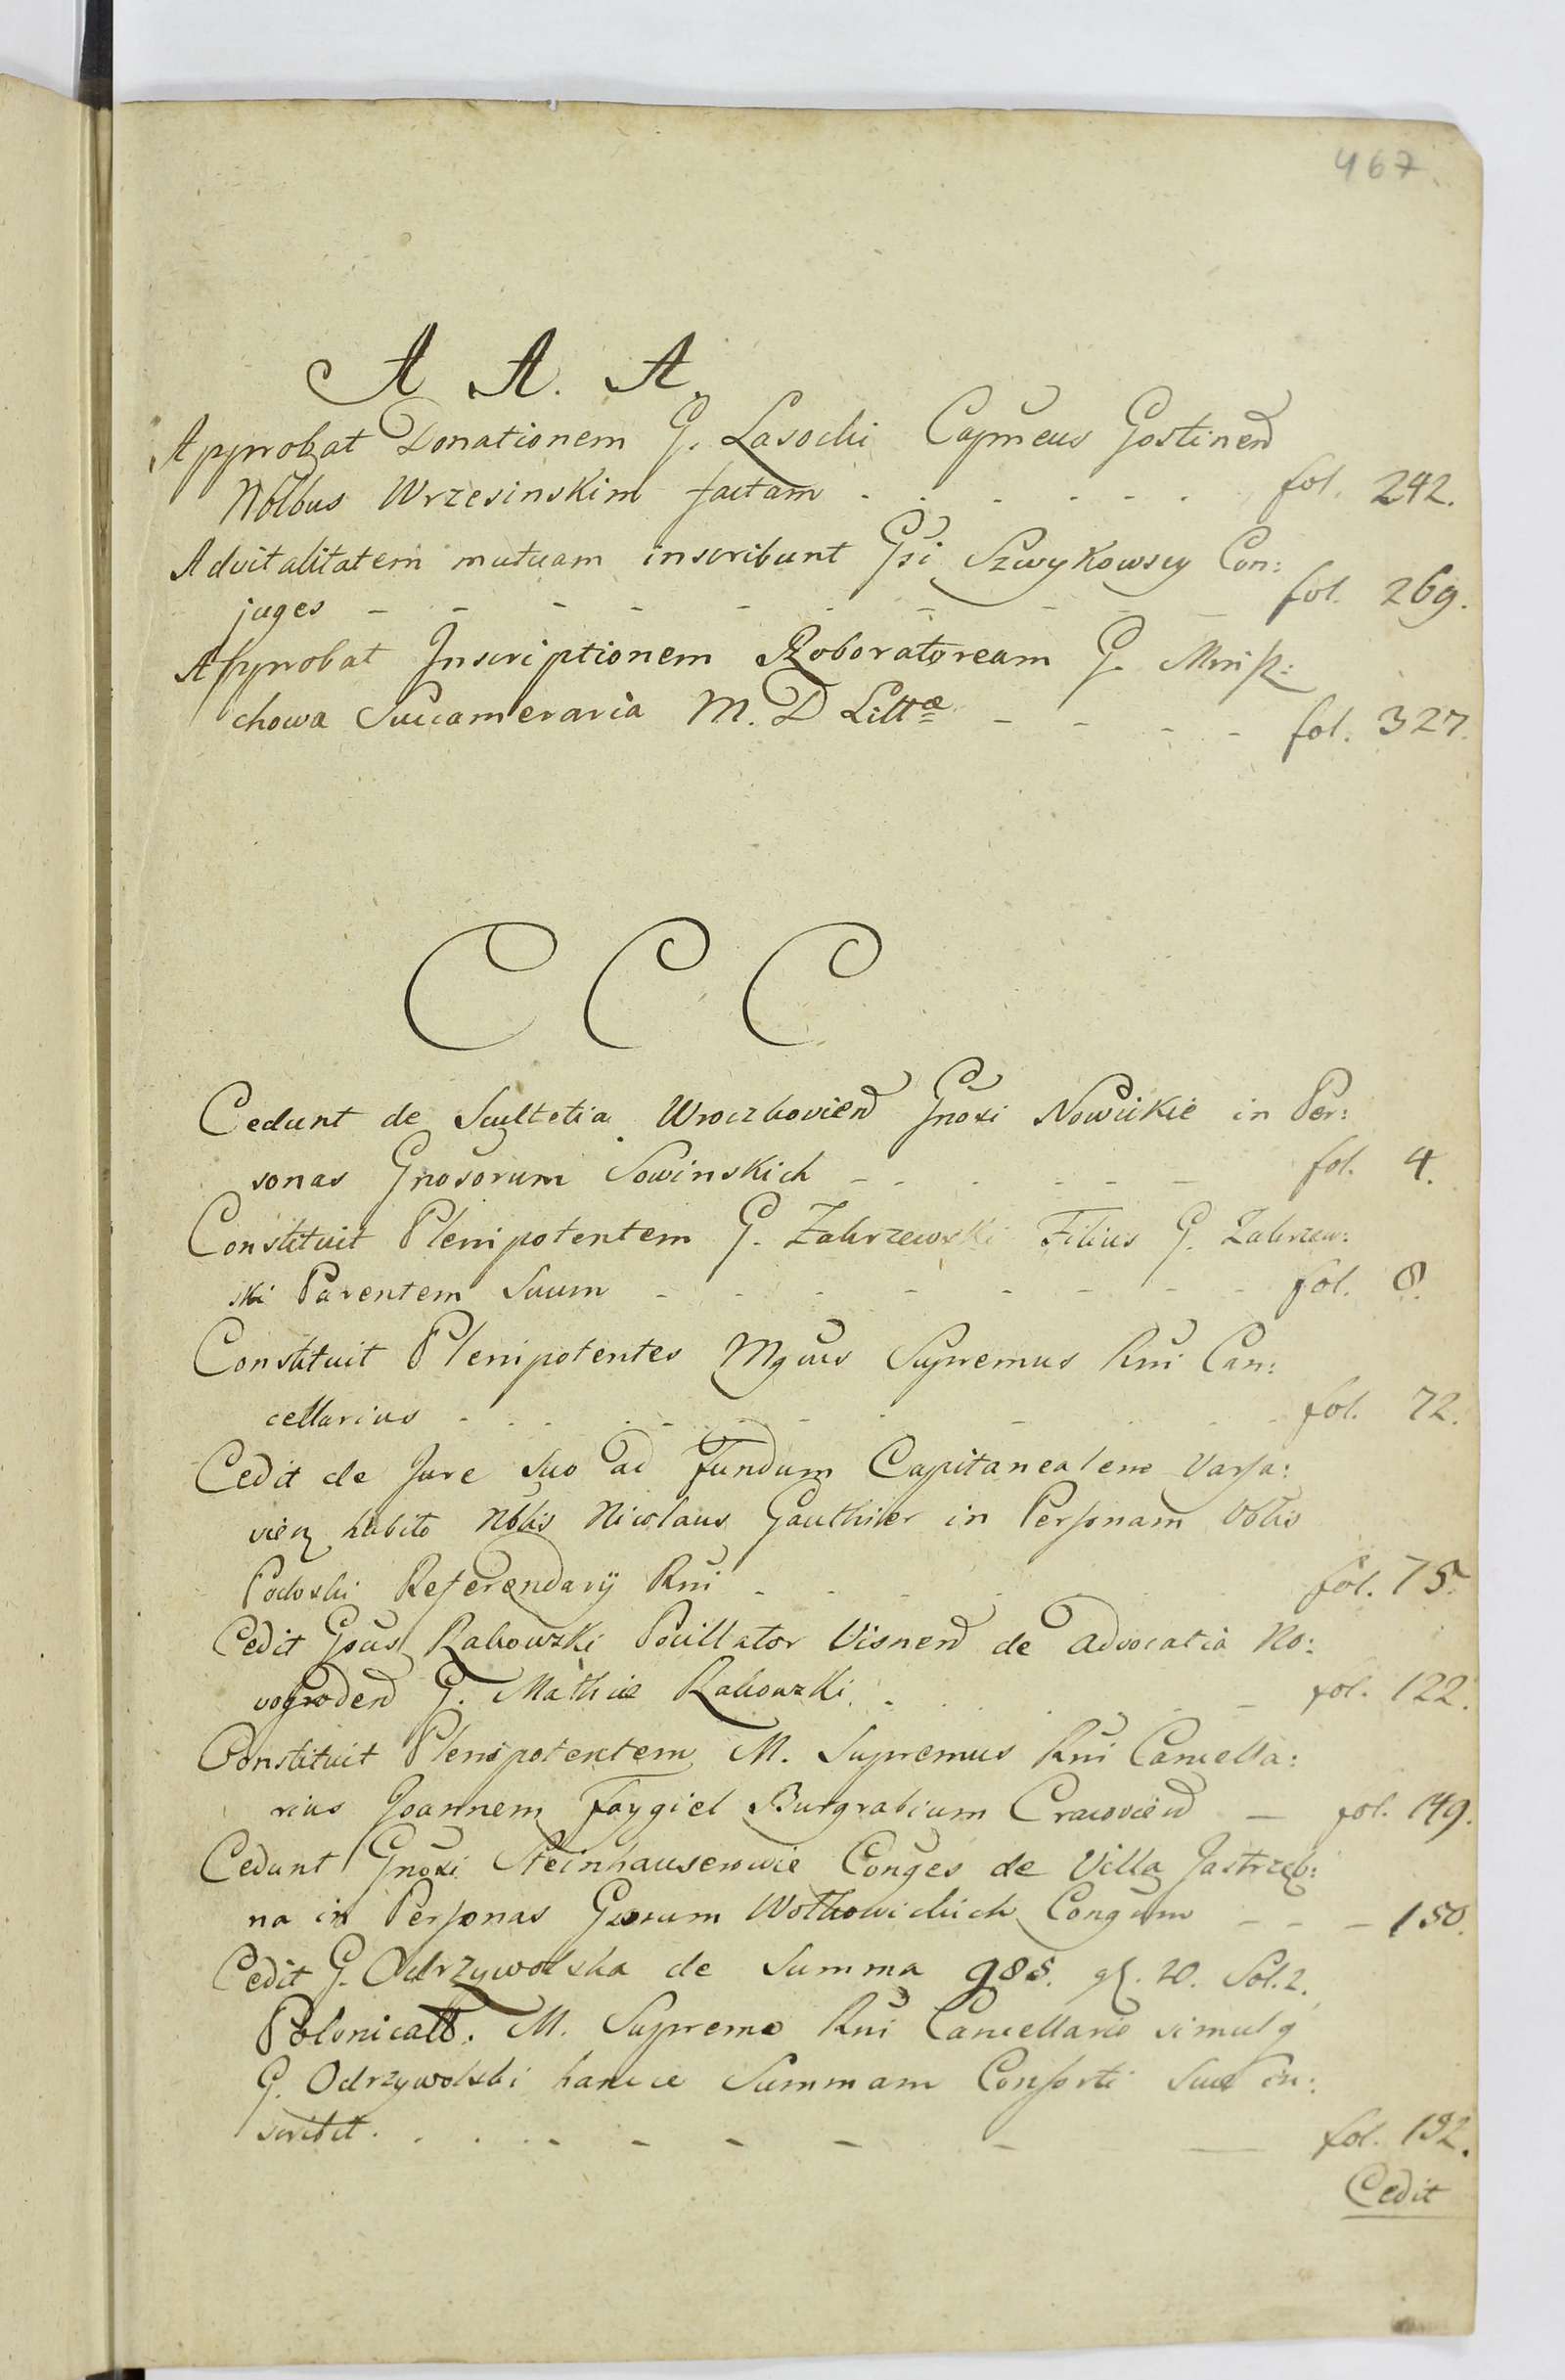 467.
A A. A.
Approbat Donationem G. Lasocki Capneus Gostinen
Nolbus Wrzesinskim factam - - - - - - fol. 242.
Advitalitatem mutuam inscribunt Gsi Szwykowscy Con:
juges - - - - - - - - - fol. 269.
Approbat Inscriptionem Roboratoream G. Mnisz:
chowa Succameraria M. D Littæ - - - - fol. 327.
C C C
Cedunt de Scultetia Wroczkovien Gnosi Nowickie in Per:
sonas Gnosorum Sowinskich - - - - - - fol. 4.
Constituit Plenipotentem G. Zakrzewski Filius G. Zakrzew:
ski Parentem Suum - - - - - - - - fol. 8.
Constituit Plenipotentes Mgnus Supremus Rni Can:
cellarius - - - - - - - - - fol. 72.
Cedit de Jure suo ad Fundum Capitanealem Varsa:
vien habito Nblis Nicolaus Gauthier in Personam
Podoski Referendarij Rni - - - - - fol. 75.
Cedit Gsus Rakowzki Pocillator Visnen de Advocatia No:
vogroden G. Mathiæ Rakowzki - - - - - fol. 122.
Constituit Plenipotentem M. Supremus Rni Cancella:
rius Joannem Faygiel Burgrabium Cracovien - fol. 149.
Cedunt Gnosi Steinhauserowie Conges de Villa Jastrzeb:
na in Personas Gsorum Wolkowickich Congum - - - 150.
Cedit G. Odrzywolska de Summa 985. gl. 20. Sol. 2.
Polonicall. M. Supremo Rni Cancellario simulq
G. Odrzywolski hancce Summam Consorti Suæ in:
scribit. - - - - - - - - - fol. 192.
Cedit